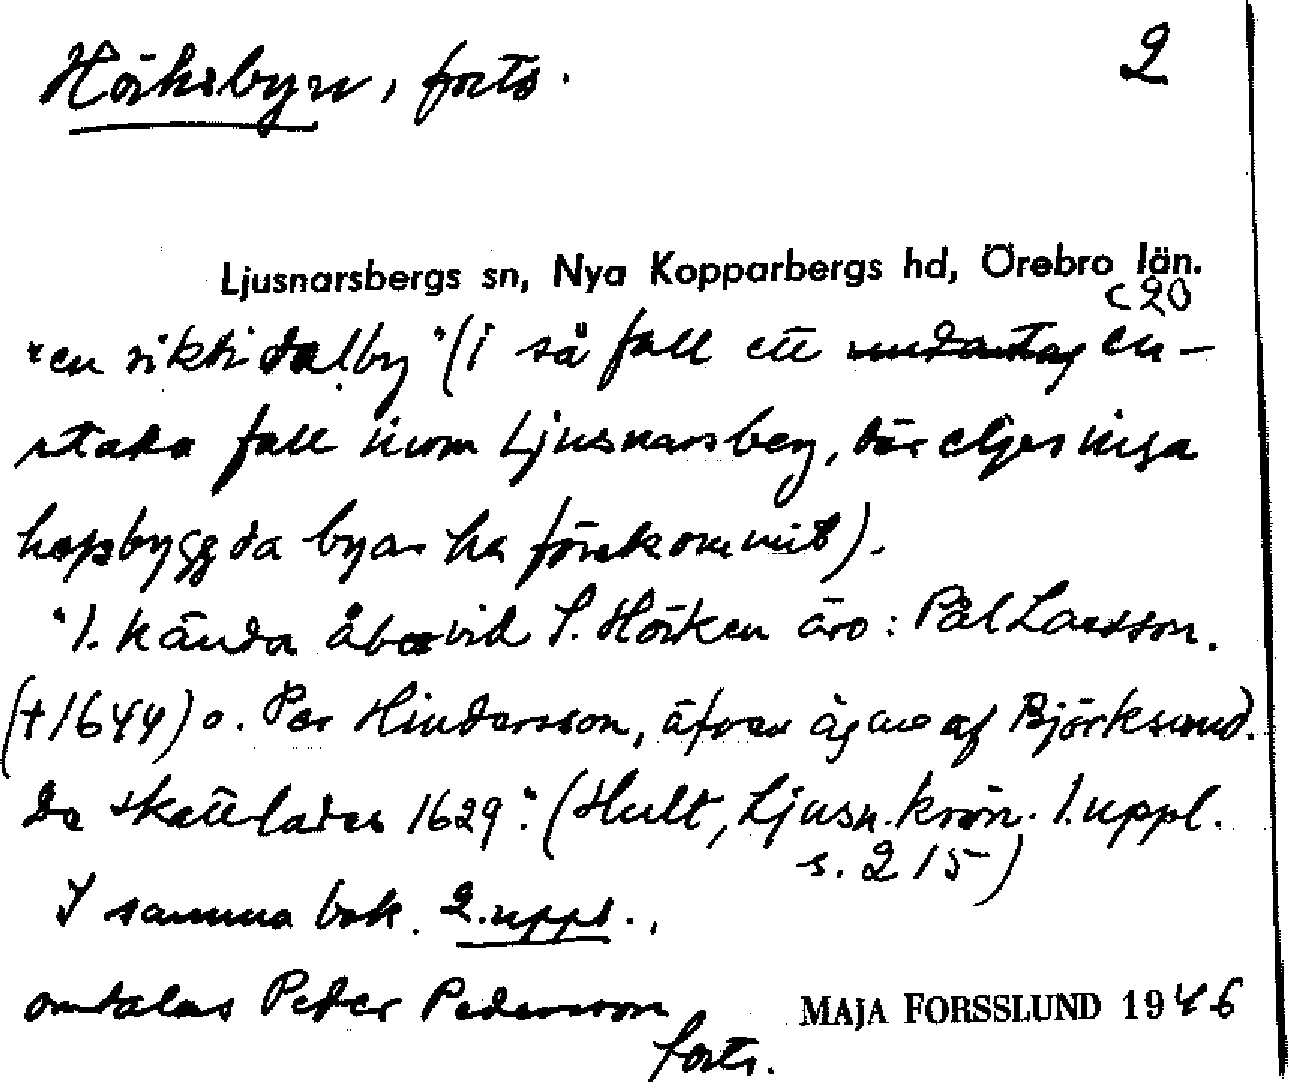 Hörksbyn, forts.
2
Ljusnarsbergs sn, Nya Kopparbergs hd, Örebro län.
c 20
"en rikti dalby" (i så fall ett undantag en-
staka fall inom Ljusnarsberg, där eljes inga
hopbyggda byar ha förekommit).
"1. kända åbor vid S. Hörken äro: Pål Larsson.
(†1644) o. Per Hindersson, äfven ägare af Björksund.
De skattlades 1629". (Hult, Ljusn. krön. 1. uppl.
s. 215)
I samma bok. 2. uppl.,
omtalas Peder Pedersson
forts.
MAJA FORSSLUND 1946